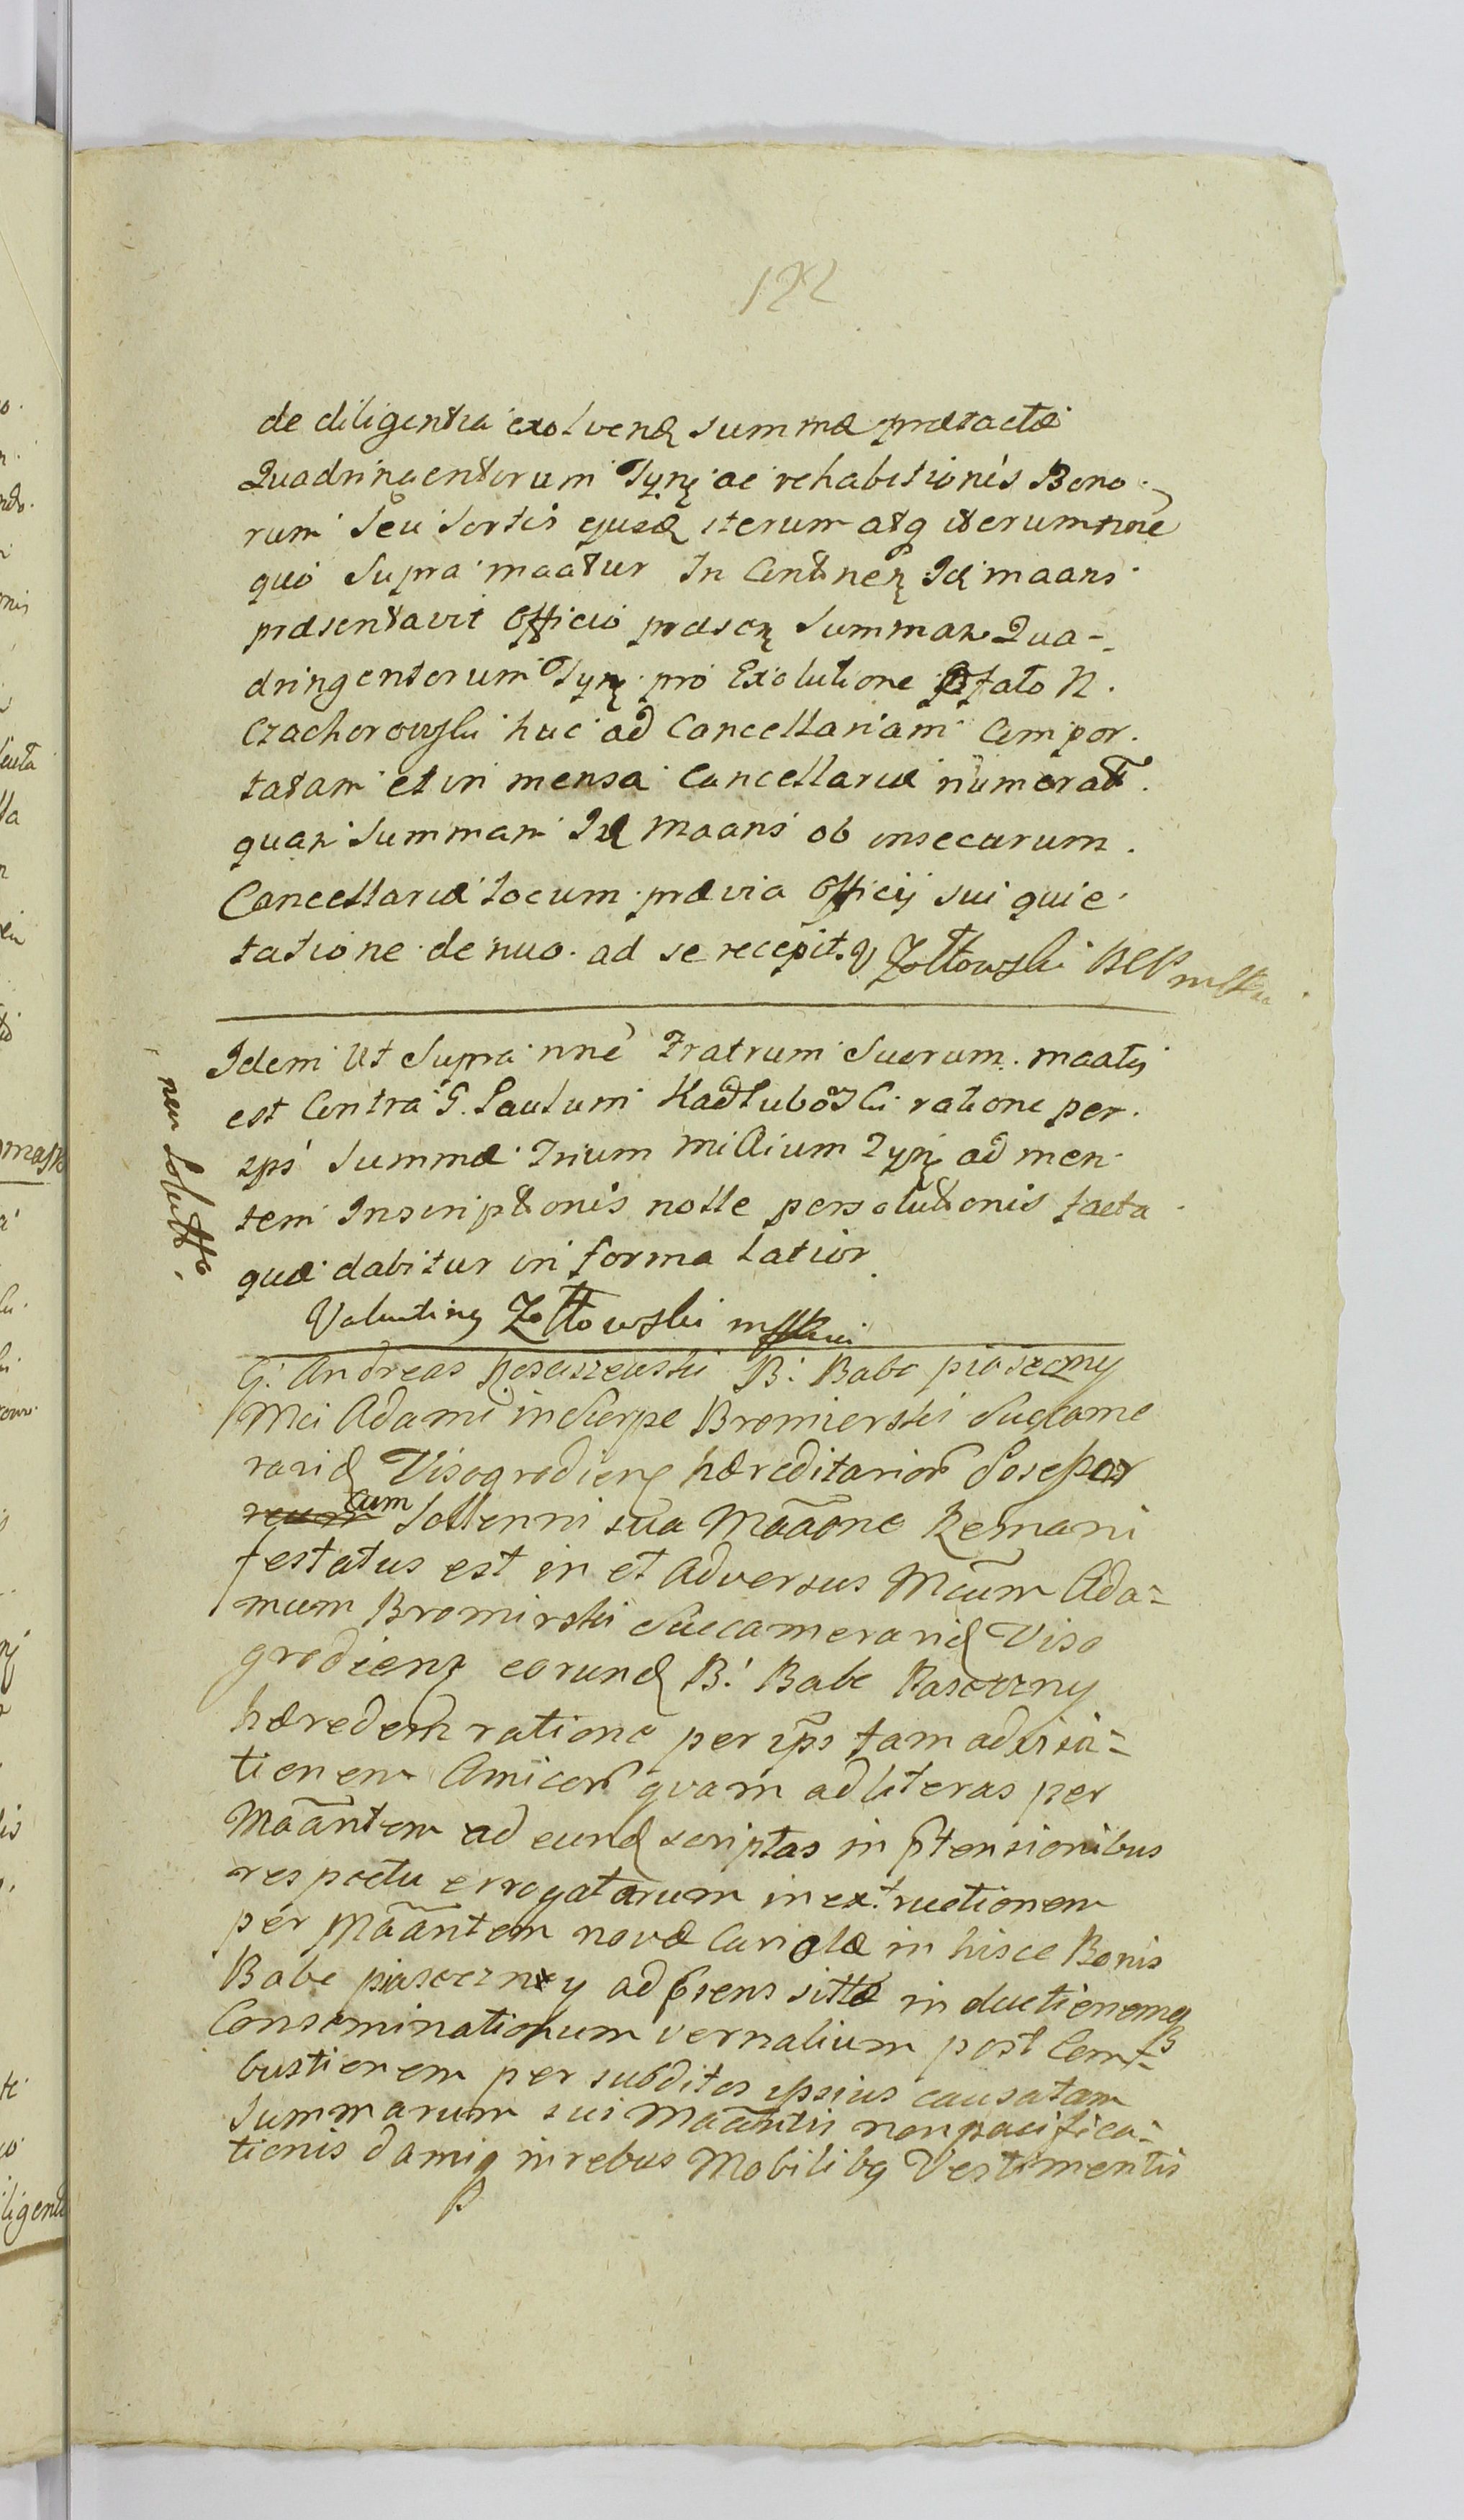 122
de diligentia exolvend summæ prætactæ
Quadringentorum Tynf ac rehabitionis Bono-
rum seu Sortis ejusd iterum atq iterum nne
quo supra maatur In Contnen Id maans
præsentavit Officio præsen Summam Qua-
dringentorum Tynf pro Exolutione Pfato N.
Czachorowski huc ad Cancellariam Compor-
tatam et in mensa Cancellariæ numerat.
quam Summam Id Maans ob insecurum
Cancellariæ locum prævia Officij sui quie-
tatione denuo ad se recepit. V Zołtowski BCP mppa
Idem Ut Supra nne Fratrum Suorum maatus
est Contra G. Paulum Kadłubowski ratione per
ips Summæ Trium Millium Tynf ad men-
tem Inscriptionis nolle persolutionis facta
quæ dabitur in forma latior
non solutt
Valentinus Zołtowski mppa
G. Andreas B. Babe piaseczny
Mci Adami in Sierpc Bromierski Succame
rarid Visogrodien hæreditarior
cum Sollenni sua Maaone Remani
festatus est in et adversus Mcum Ada=
mum Bromirski Succamerarid Viso
grodienz eorund B. Babe Piaseczny
hæredem ratione per ips tam ad
tionem Amicor quam ad literas per
Maantem ad eund scriptas in ptensionibus
respectu errogatarum in extructionem
per Maantem novæ Curiolæ in hisce Bonis
Babe piaseczny ad psens sittæ inductionemq
Conseminationum vernalium post Com=
bustionem per subditos ipsius causatam
Summarum sui Maantis non pacifica=
tionis damiq in rebus Mobilibq Vestimentis